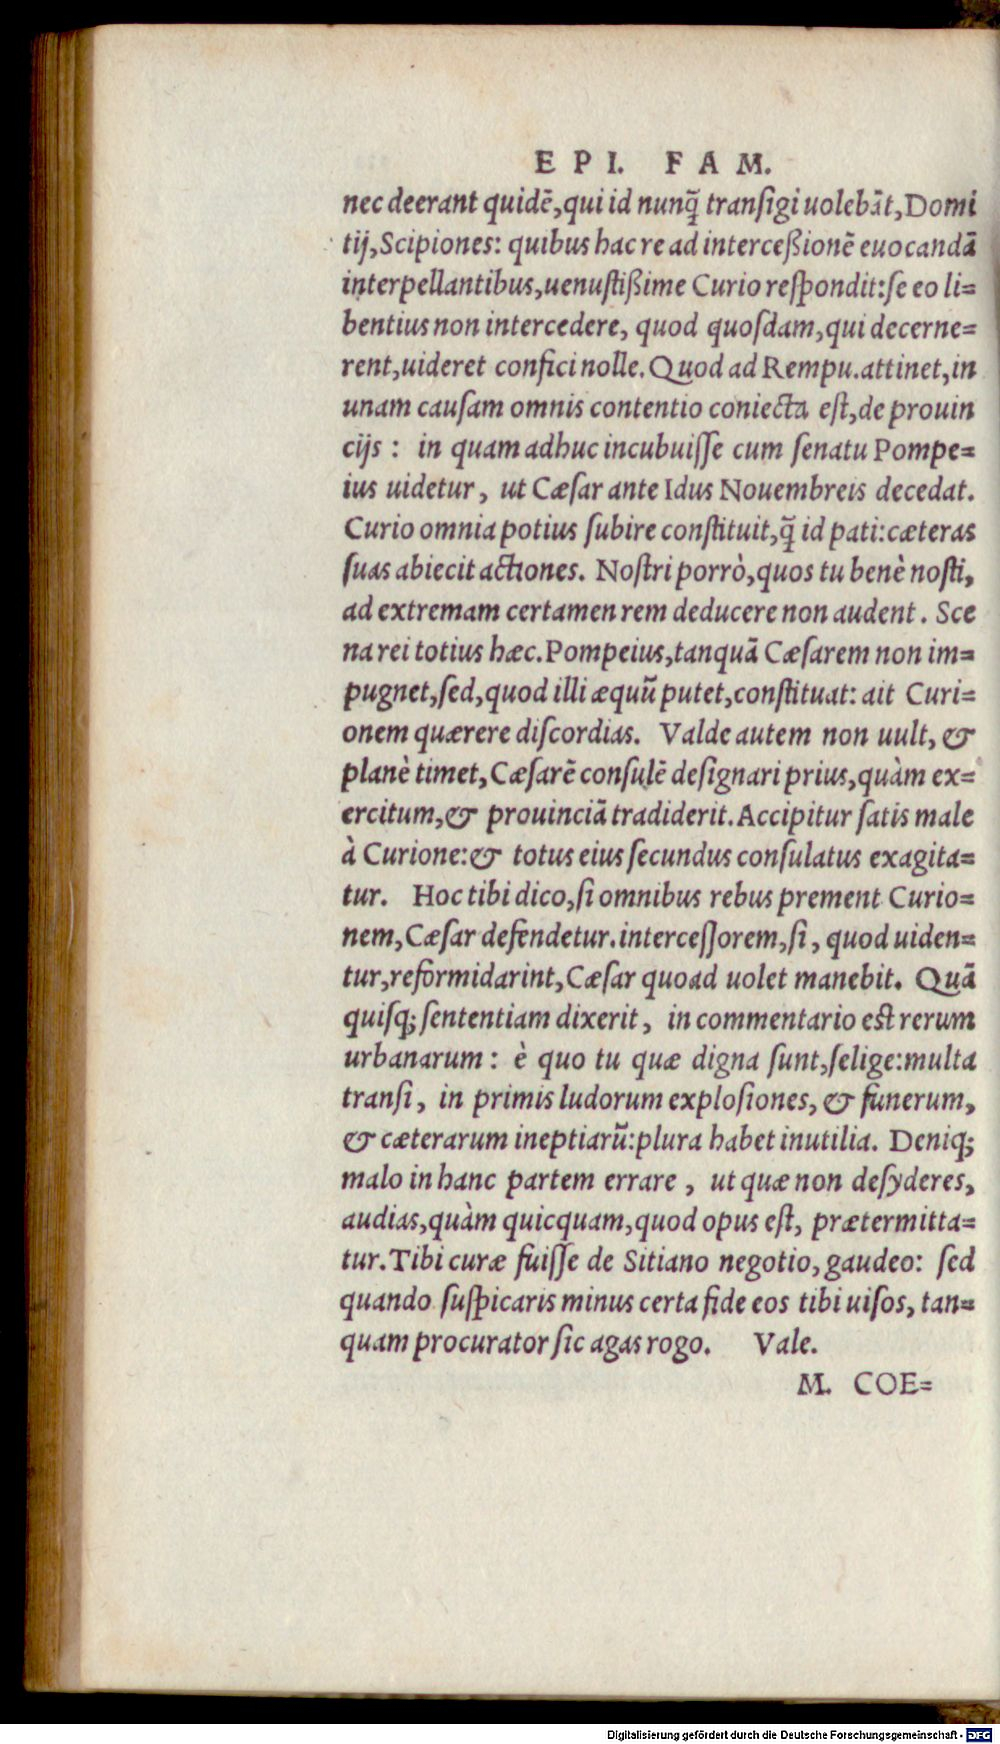 EPI. FAM.
nec deerant quidē,qui id nunq̃ transigi uolebāt,Domi
tij,Scipiones: quibus hac re ad interceßionē euocandā
interpellantibus,uenustißime Curio respondit:se eo li=
bentius non intercedere, quod quosdam,qui decerne=
rent,uideret confici nolle. Quod ad Rempu.attinet,in
unam causam omnis contentio coniecta est,de prouin
cijs : in quam adhuc incubuisse cum senatu Pompe=
ius uidetur, ut Cæsar ante Idus Nouembreis decedat.
Curio omnia potius subire constituit,q̃ id pati:cæteras
suas abiecit actiones. Nostri porrò,quos tu benè nosti,
ad extremam certamen rem deducere non audent. Sce
na rei totius hæc.Pompeius,tanquā Cæsarem non im=
pugnet,sed,quod illi æquũ putet,constituat: ait Curi=
onem quærere discordias. Valde autem non uult, &
planè timet,Cæsarē consulē designari prius,quàm ex=
ercitum,& prouinciā tradiderit.Accipitur satis male
à Curione:& totus eius secundus consulatus exagita=
tur. Hoc tibi dico,si omnibus rebus prement Curio=
nem,Cæsar defendetur.intercessorem,si, quod uiden=
tur,reformidarint,Cæsar quoad uolet manebit. Quā
quisq; sententiam dixerit, in commentario est rerum
urbanarum : è quo tu quæ digna sunt,selige:multa
transi, in primis ludorum explosiones, & funerum,
& cæterarum ineptiarũ:plura habet inutilia. Deniq;
malo in hanc partem errare, ut quæ non desyderes,
audias,quàm quicquam,quod opus est, prætermitta=
tur.Tibi curæ fuisse de Sitiano negotio,gaudeo: sed
quando suspicaris minus certa fide eos tibi uisos, tan=
quam procurator sic agas rogo. Vale.
M. COE=
Digitalisierung gefördert durch die Deutsche Forschungsgemeinschaft - DFG